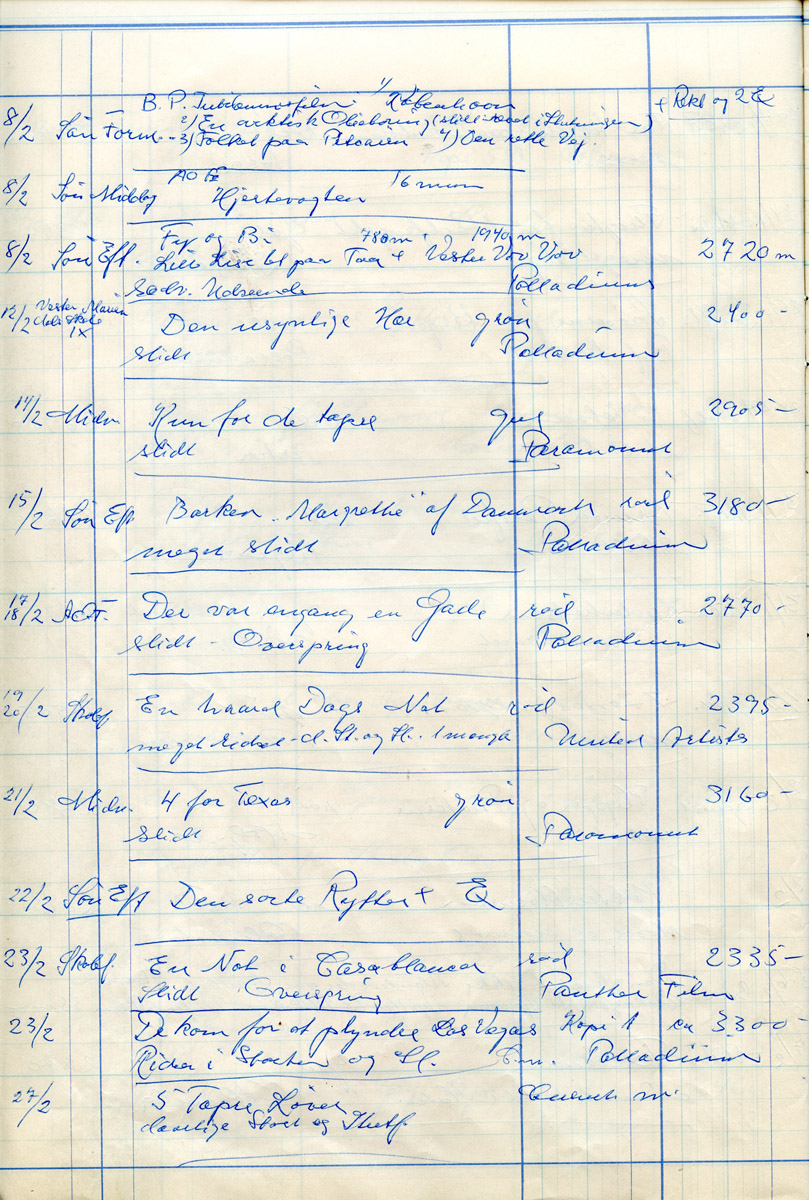 B. P. Jubilæumsfilm: 1/ København + Rekl og 2 E
8/2 Søn Form. 2) En arktisk Olieboring (slidt i Slutningen)
3) Folket paa 4) Den rette Vej.
AOF 16 mm
8/2 Søn Middag Hjertevagten
Fy og Bi 780 m 1940 m
8/2 Søn Eft. Lille Lise let paa Taa + Vester Vov Vov 2720 m
Sædv. Udseende Palladium
12/2 Vester Marien Den usynlige Hær grøn 2400 -
IX
slidt Palladium
14/2 Midn. Kun for de tapre gul 2905 -
slidt Paramount
15/2 Søn Eft Barken "Margrethe" af Danmark rød 3180 -
meget slidt Palladium
17
18/2 AOF. Der var engang en Gade rød 2770 -
slidt - Overspring Palladium
19
20/2 Skolef En haard Dags Nat rød 2395 -
meget ridset - d. St. og Sl. United Artists
21/2 Midn. 4 for Texas grøn 3160 -
slidt Paramount
22/2 Søn Eft Den sorte Rytter + E
23/2 Skolef. En Nat i Casablanca rød 2335 -
Slidt Overspring Panther Film
23/2 De kom for at plyndre Las Vegas Kopi 1 ca 3300 -
Ridser i Starten og Sl. Palladium
27/2 5 Tapre Løver
daarlige Start og Slutf.